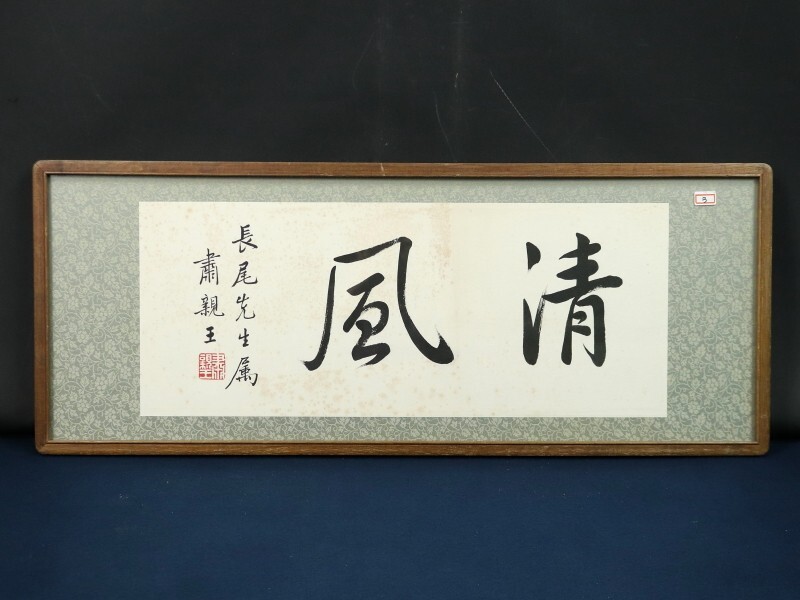 清風
長尾先生属
肅親王
3